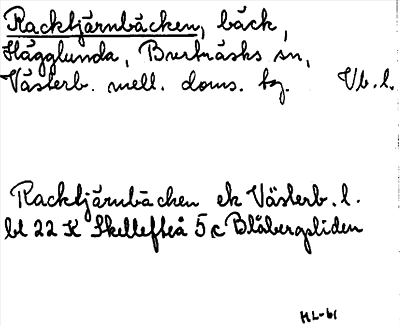 Racktjärnbäcken, bäck,
Hägglunda, Burträsks sn,
Västerb. mell. doms. tg. Vb. l.
Racktjärnbäcken ek Västerb. l.
bl 22 K Skellefteå 5c Blåbergsliden
HL-61